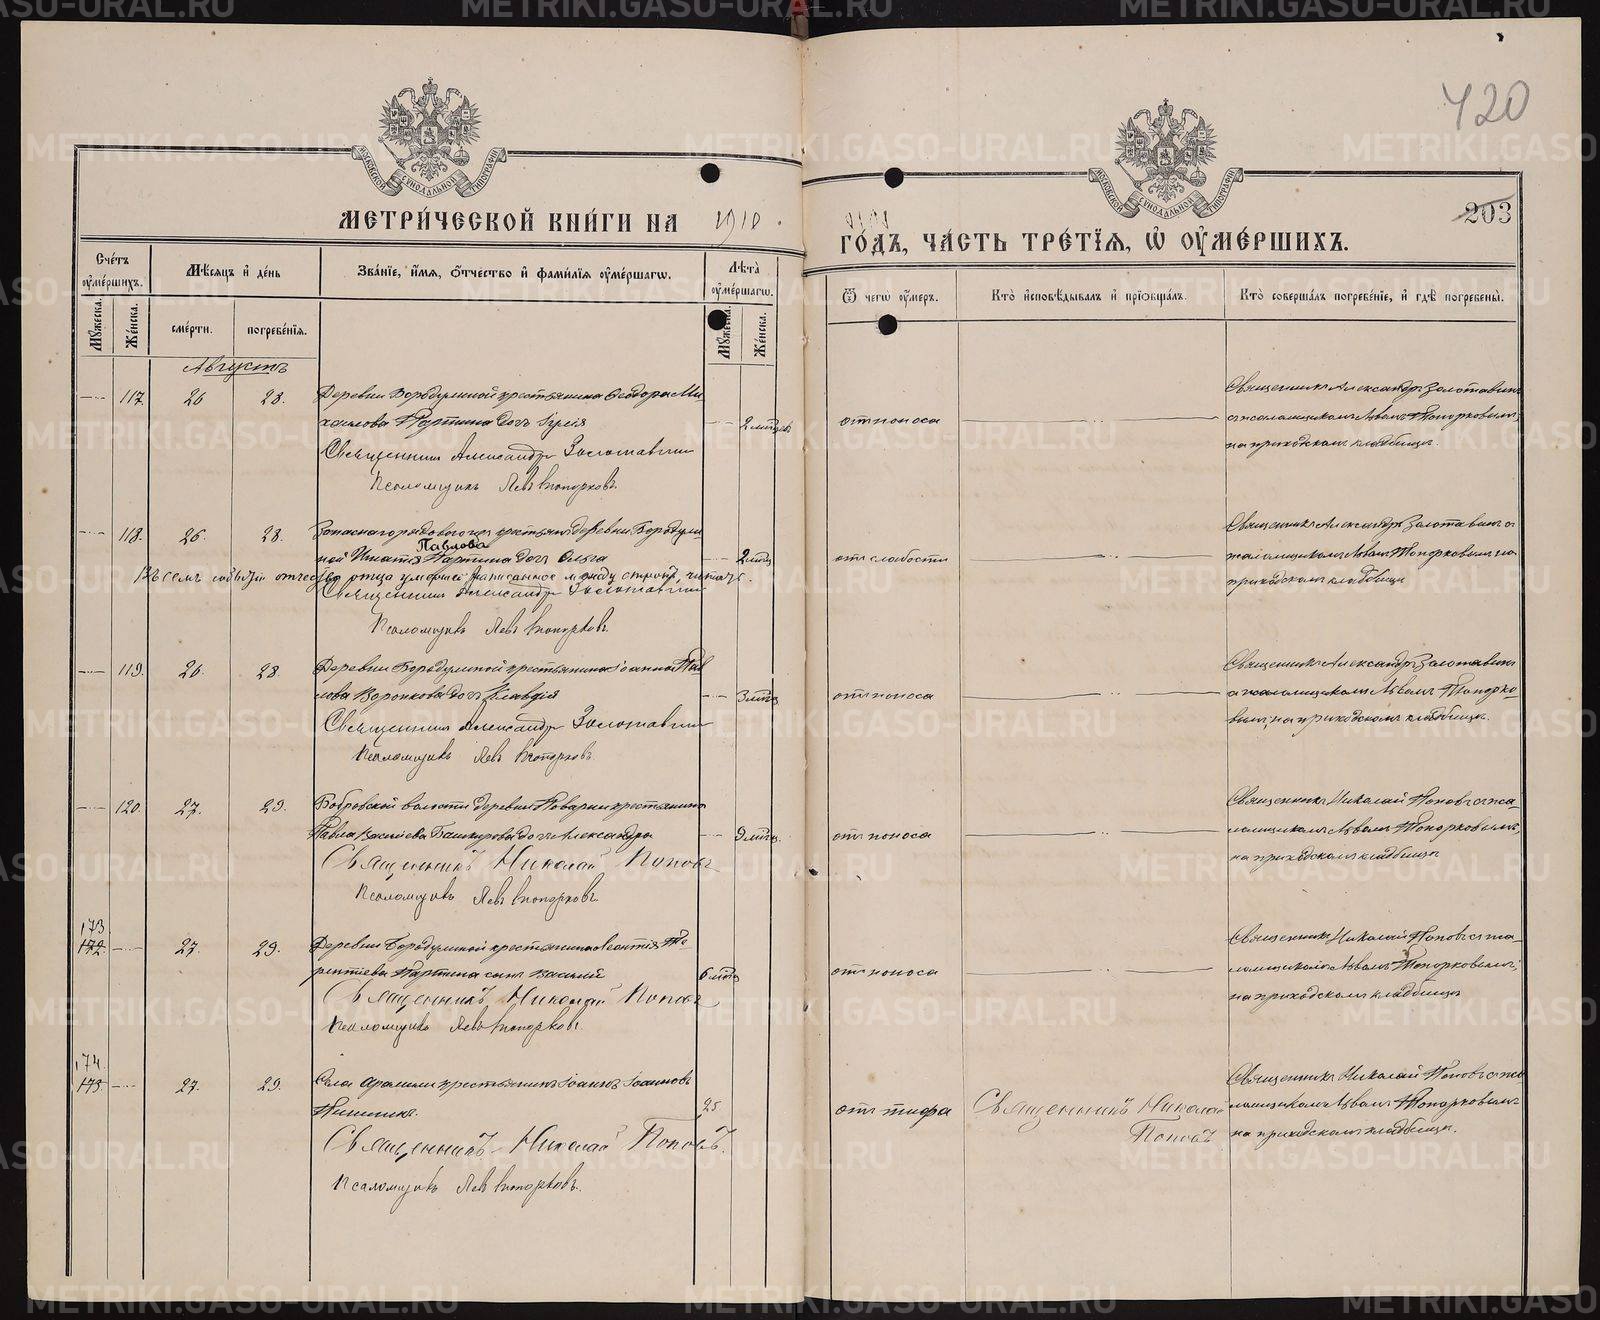 420
МОСКОВСКОЙ СУНОДАЛЬНОЙ ТИПОГРАФІИ
МОСКОВСКОЙ СУНОДАЛЬНОЙ ТИПОГРАФІИ
203
МЕТРИ́ЧЕСКОЙ КНИ́ГИ НА 1910.
ГО́ДЪ, ЧА́СТЬ ТРЕ́ТІѦ, Ѡ҆ ОУ҆МЕ́РШИХЪ.
Сче́тъ оу҆ме́ршихъ.
Мѣ́сѧцъ и҆ де́нь
Зва́нїе, и҆́мѧ, ѻ҆́тчество и҆ фами́лїѧ оу҆ме́ршагѡ.
Лѣ́та оу҆ме́ршагѡ.
Ѿ чегѡ̀ оу҆́меръ.
Кто̀ и҆сповѣ́дывалъ и҆ прїѻбща́лъ.
Кто̀ соверша́лъ погребе́нїе, и҆ гдѣ̀ погребены̀.
Мꙋ́жеска.
Же́нска.
сме́рти.
погребе́нїѧ.
Мꙋ́жеска.
Же́нска.
Августъ
117.
26
28.
Деревни Бородулиной крестьянина Ѳеодора Ми
хаилова Партина дочь
Священникъ Александръ Золотавинъ
Псаломщикъ Левъ Топорковъ.
отъ поноса
Священникъ Александръ Золотавинъ
съ псаломщикомъ Львомъ Топорковымъ,
на приходскомъ кладбищѣ.
118.
26.
28.
крестьян. деревни Бородули
ной Игнатія Павлова Партина дочь Ольга
2 мѣс.
Въ семъ событіи отчество отца умершей, написанное между строкъ, читать.
Священникъ Александръ Золотавинъ
Псаломщикъ Левъ Топорковъ.
отъ слабости
Священникъ Александръ Золотавинъ съ
псаломщикомъ Львомъ Топорковымъ на
приходскомъ кладбищѣ
119.
26.
28.
Деревни Бородулиной крестьянина Іоанна Пав
лова Воронкова дочь Клавдія
3 мѣс.
Священникъ Александръ Золотавинъ
Псаломщикъ Левъ Топорковъ
отъ поноса
Священникъ Александръ Золотавинъ
съ псаломщикомъ Львомъ Топорко-
вымъ, на приходскомъ кладбищѣ.
120.
27.
29.
Бобровской волости деревни Поварни крестьянина
Павла Васильева Башкирова дочь Александра
9 мѣс.
Священникъ Николай Поповъ
Псаломщикъ Левъ Топорковъ.
отъ поноса
Священникъ Николай Поповъ съ пса
ломщикомъ Львомъ Топорковымъ,
на приходскомъ кладбищѣ
173
172.
27.
29.
Деревни Бородулиной крестьянина Леонтія Те
рентіева Партина сынъ Василій
6 мѣс.
Священникъ Николай Поповъ
Псаломщикъ Левъ Топорковъ.
отъ поноса
Священникъ Николай Поповъ съ пса-
ломщикомъ Львомъ Топорковымъ,
на приходскомъ кладбищѣ
174.
173.
27.
29.
Села Арамили крестьянинъ Іоаннъ Іоанновъ
25
Священникъ Николай Поповъ.
Псаломщикъ Левъ Топорковъ.
отъ тифа
Священникъ Николай
Поповъ
Священникъ Николай Поповъ съ пса
ломщикомъ Львомъ Топорковымъ
на приходскомъ кладбищѣ.
METRIKI.GASO-URAL.RU